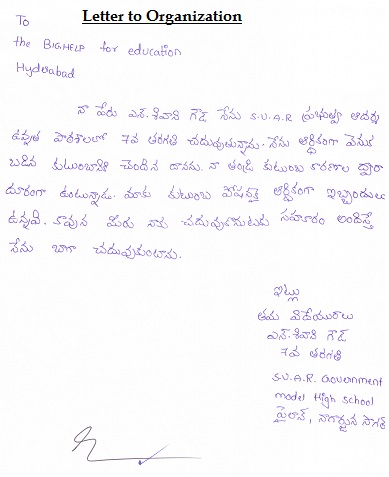 Letter to Organization
To
the BIGHELP for education
Hyderabad
నా పేరు ఎన్.శివాని గౌడ్ నేను S.V.A.R ప్రభుత్వ ఆదర్శ
ఉన్నత పాఠశాలలో 7వ తరగతి చదువుతున్నాను. నేను ఆర్థికంగా వెనుక
బడిన కుటుంబానికి చెందిన దానను. నా తండ్రి కుటుంబ కారణాల ద్వారా
దూరంగా ఉంటున్నాడు. మాకు కుటుంబ పోషణకై ఆర్థికంగా ఇబ్బందులు
ఉన్నవి. కావున మీరు నాకు చదువుకొనుటకు సహకారం అందిస్తే
నేను బాగా చదువుకుంటాను.
ఇట్లు
తమ విధేయురాలు
ఎన్.శివాని గౌడ్
7వ తరగతి
S.V.A.R. Government
model High school
పైలాన్, నాగార్జున సాగర్